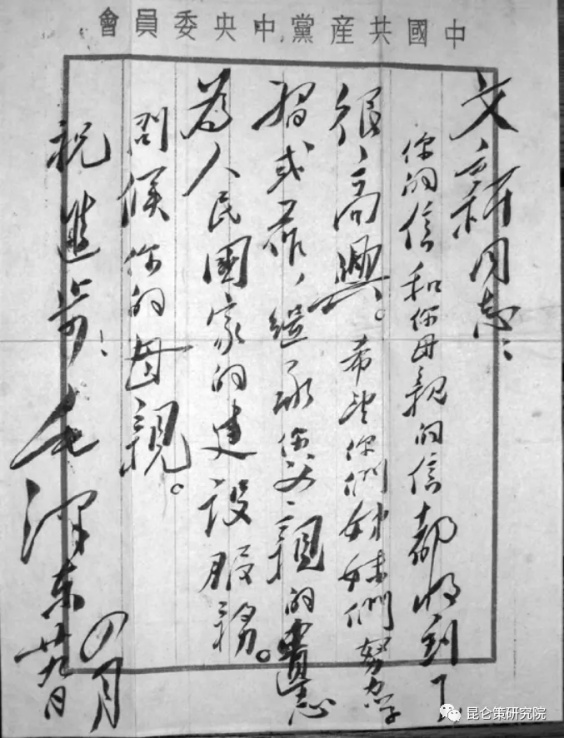 中國共産黨中央委員會
文新同志：
你的信和你母親的信都收到了
很高興。希望你們姊妹們努力学
習或工作，繼承你父親的遺志
為人民國家的建設服務。
問候你的母親。
祝進步！毛澤東
四月
廿九日
昆仑策研究院